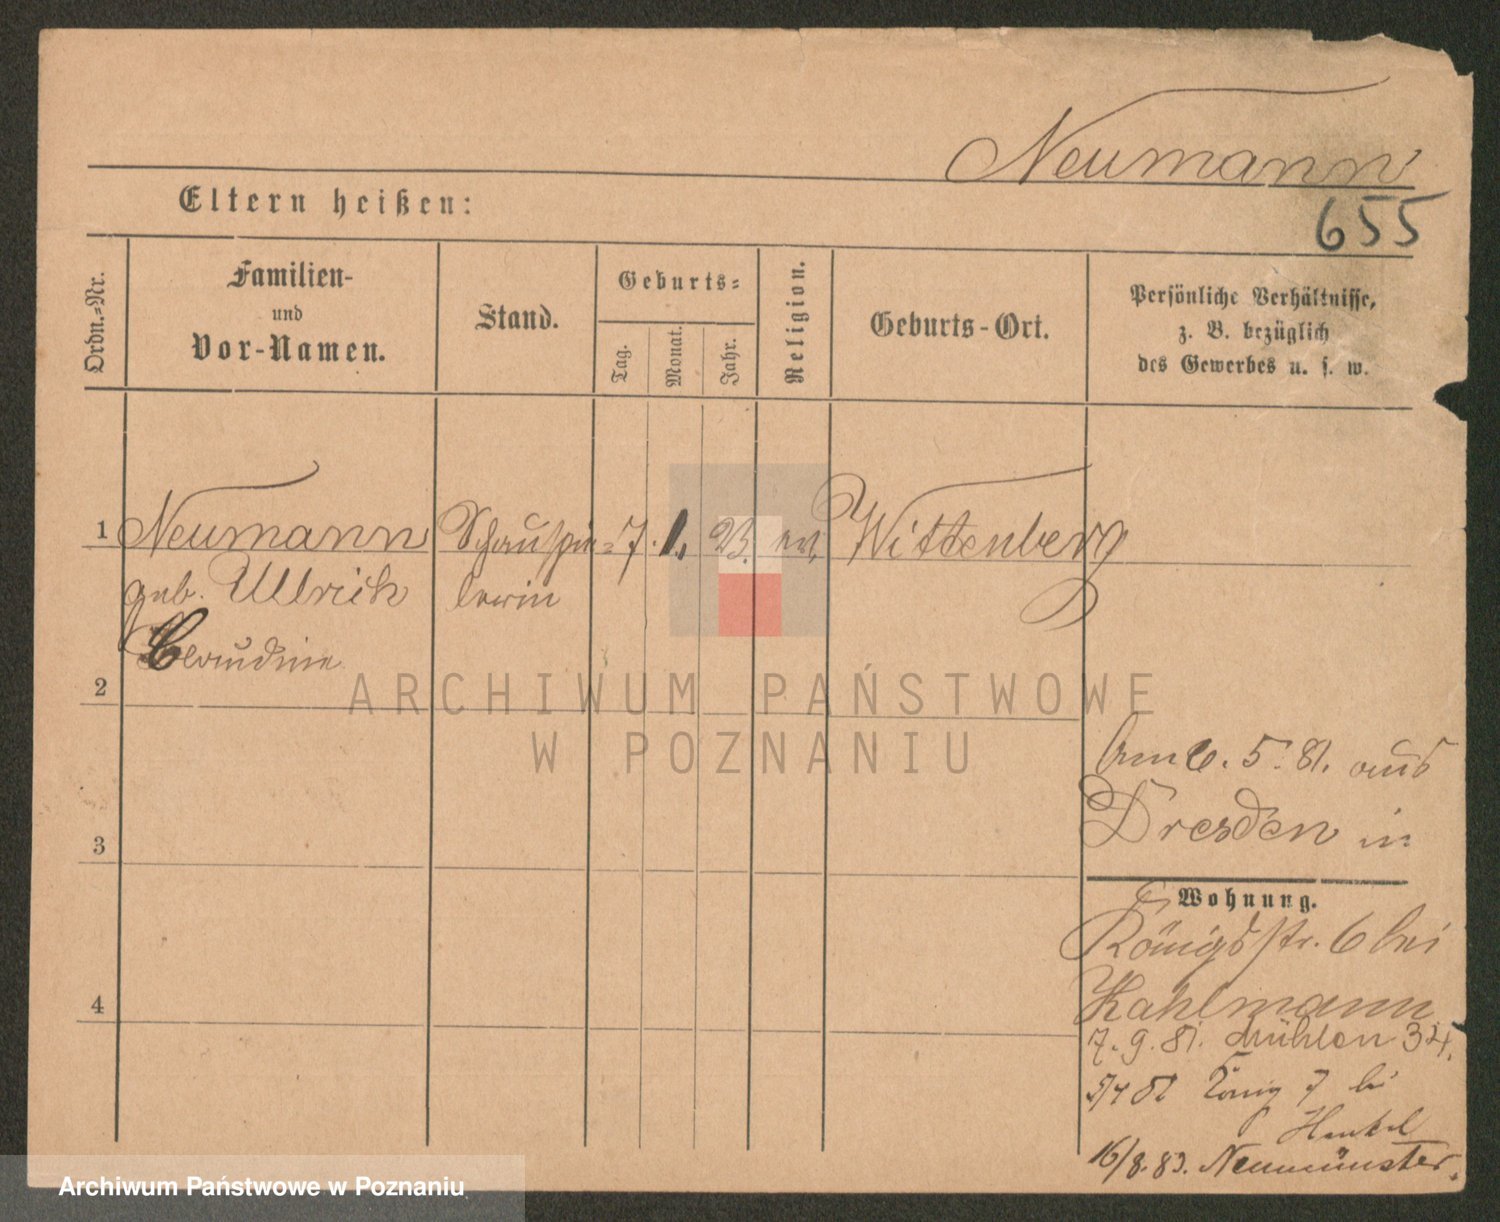 Neumann
655
Eltern heißen:
Ordn.-Nr.
Familien-
und
Vor-Namen.
Stand.
Geburts-
Tag.
Monat.
Jahr.
Religion.
Geburts-Ort.
Persönliche Verhältnisse,
z. B. bezüglich
des Gewerbes u. s. w.
1 Neumann Schauspie= 7. 1. 23. ev. Wittenberg
geb. Ullrich lerin
Claudine
2
ARCHIWUM PAŃSTWOWE
W POZNANIU
Am 6. 5. 81. aus
Dresden in
3
Wohnung.
Königsstr. 6 bei
Kahlmann
4
7. 9. 81. Mühlen 34.
König 7 bei
Henkel
16/8. 83. Neumünster.
Archiwum Państwowe w Poznaniu